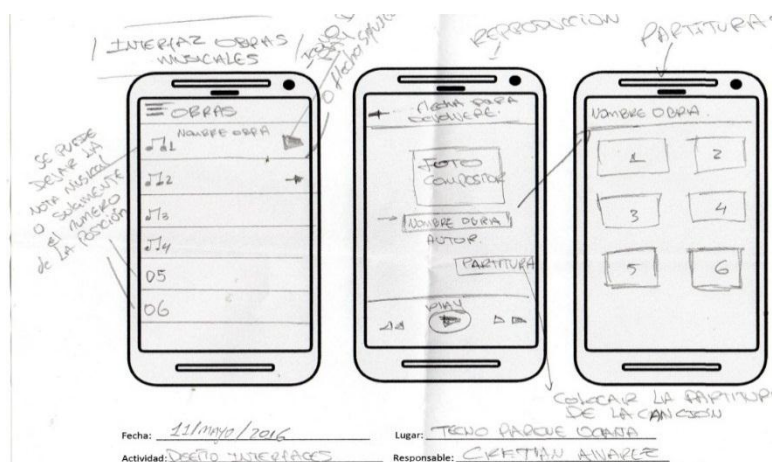 INTERFAZ OBRAS
MUSICALES
REPRODUCCION
PARTITURA
OBRAS
NOMBRE OBRA
1
2
3
4
05
06
SE PUEDE
DEJAR LA
NOTA MUSICAL
O SOLAMENTE
el NUMERO
de LA POSICIÓN
FLECHA PARA
DEVOLVERSE.
FOTO
COMPOSITOR
NOMBRE OBRA
AUTOR.
PARTITURA
PLAY
NOMBRE OBRA.
1
2
3
4
5
6
COLOCAR LA PARTITURA
DE LA CANCIÓN
Fecha: 11/mayo/2016
Lugar: TECNO PARQUE OCAÑA
Actividad: DISEÑO INTERFACES
Responsable: CRISTIAN ALVAREZ